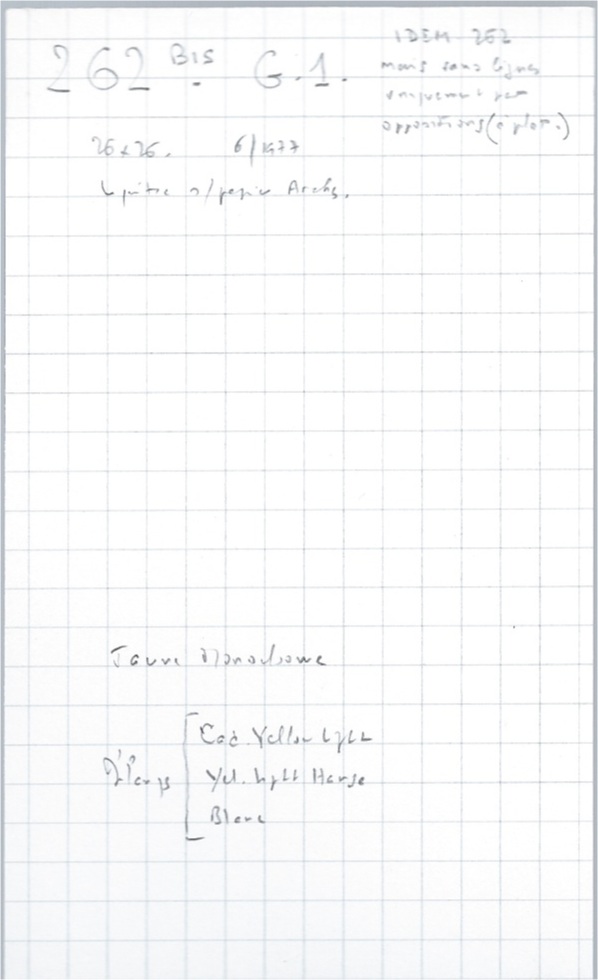 262 BIS G.1.
IDEM 262
mais sans lignes
uniquement par
oppositions (
26x26. 6/1977
s/papier Archs.
Jaune Monochrome
Cad. Yellow Light
Yel. Light Hansa
Blanc